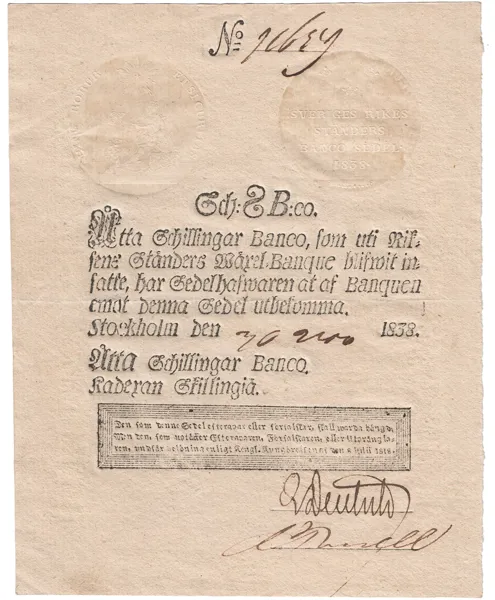 No
SVERIGES RIKES
STÄNDERS
BANCO SEDEL
1838.
Sch: 8 B:co.
Åtta Schillingar Banco, som uti Rik-
sens Ständers Wäxel-Banque blifwit in-
satte, har Sedelhafwaren at af Banquen
emot denna Sedel utbekomma.
Stockholm den 1838.
Åtta Schillingar Banco.
Kadexan Skillingiä.
Den som denne Sedel efterapar eller förfalskar, skall warda hängd.
Men den, som uptäcker Efteraparen, Förfalskaren, eller Utprångla-
ren, undfår belöning enligt Kongl. Kungörelsen af den 1818.